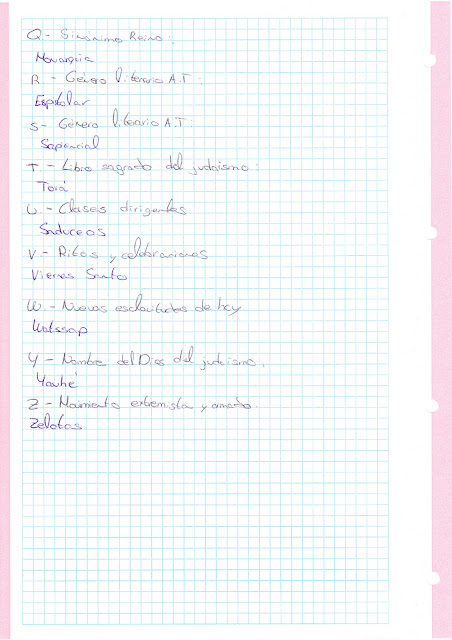 Q - Sinonimo Reino:
Monarquia
R - Género literario A.T:
Espitolar
S - Género literario A.T:
Sapiencial
T - Libro sagrado del judaismo:
Torá
U - Clases dirigentes
Saduceos
V - Ritos y celebraciones
Viernes Santo
W - Nuevas esclavitudes de hoy
Watssap
Y - Nombre del Dios del judaismo.
Yavhé
Z - Moimiento extremista y armado.
Zelotas